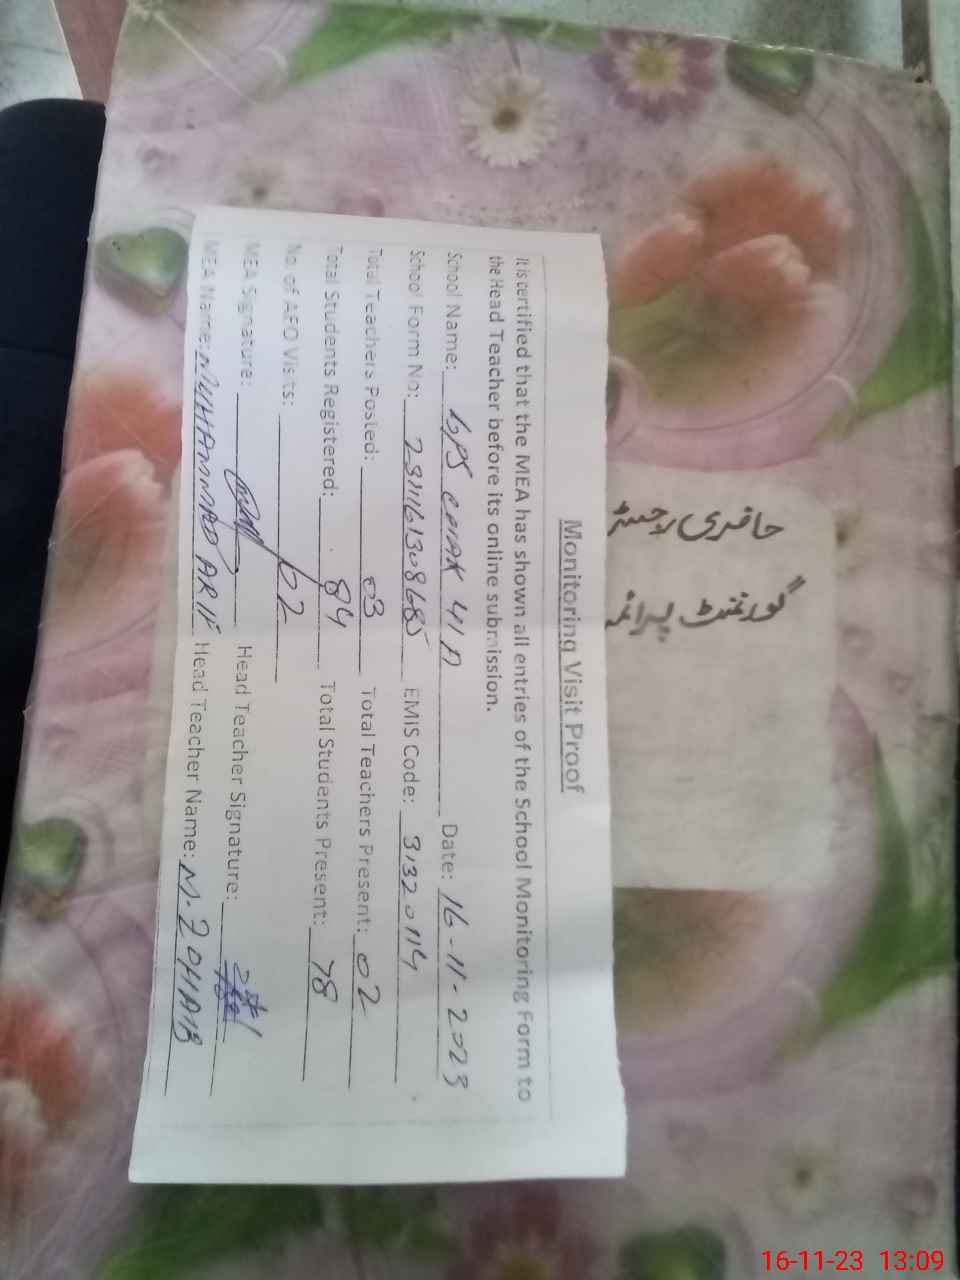 حاضری رجسٹر
گورنمنٹ پرائمر
Monitoring Visit Proof
It is certified that the MEA has shown all entries of the School Monitoring Form to
the Head Teacher before its online submission.
School Name: GPS CHAK 41 D Date: 16-11-2023
School Form No: EMIS Code: 31320114
Total Teachers Posted: 03 Total Teachers Present: 02
Total Students Registered: 84 Total Students Present: 78
No. of AEO Visits: 02
MEA Signature: Head Teacher Signature:
MEA Name: MUHAMMAD ARIF Head Teacher Name: M. ZOHAIB
16-11-23 13:09